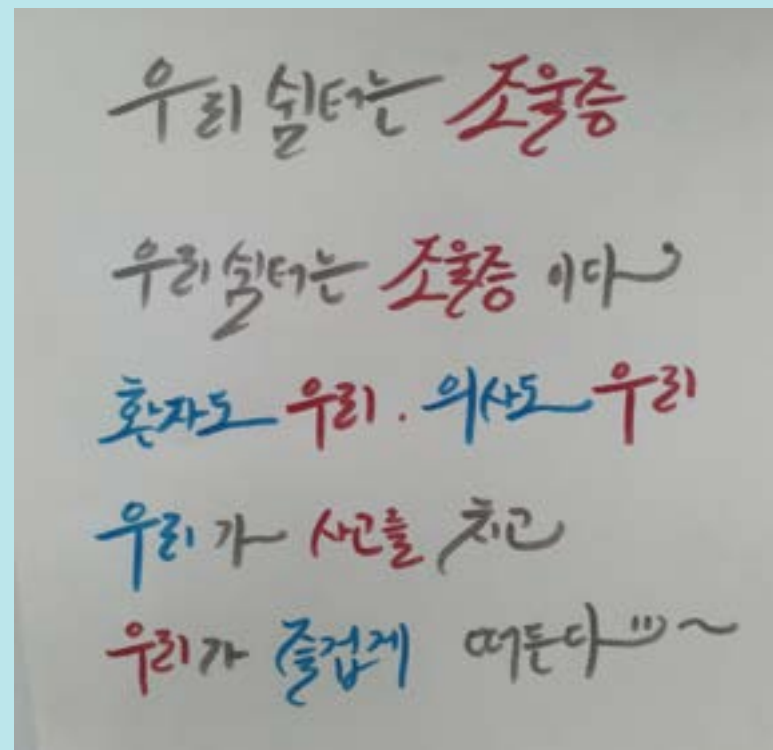 우리 쉼터는 조울증
우리 쉼터는 조울증 이다
환자도 우리. 의사도 우리
우리가 사고를 치고
우리가 즐겁게 떠든다 ~